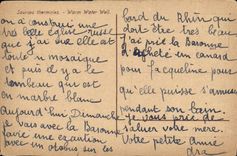 Sources thermales. - Warm Water Well.
on a construit une
très belle église russe
que j'ai vue elle est
toute en mosaïque
et puis il y a le
tombeau qui est
en marbre blanc
Aujourd'hui, Dimanche
je vais avec la Baronne
faire une excursion
avec un autobus sur les
bord du Rhin qui
doit être très beau
J'ai prié la Baronne
d'acheté en canard
pour Jacqueline pour
qu'elle puisse s'amuser
pendant son bain.
je vous prie de
saluer votre mère.
Votre petite amie